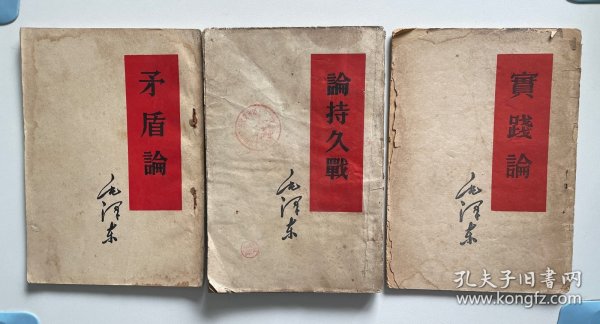 矛盾論
毛泽东
論持久戰
毛泽东
實踐論
毛泽东
孔夫子旧书网
www.kongfz.com